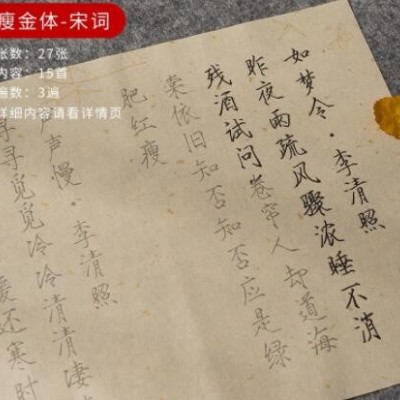 瘦金体-宋词
张数：27张
内容：15首
遍数：3遍
详细内容请看详情页
如梦令·李清照
昨夜雨疏风骤浓睡不消
残酒试问卷帘人却道海
棠依旧知否知否应是绿
肥红瘦
声声慢·李清照
寻寻觅觅冷冷清清凄
暖还寒时